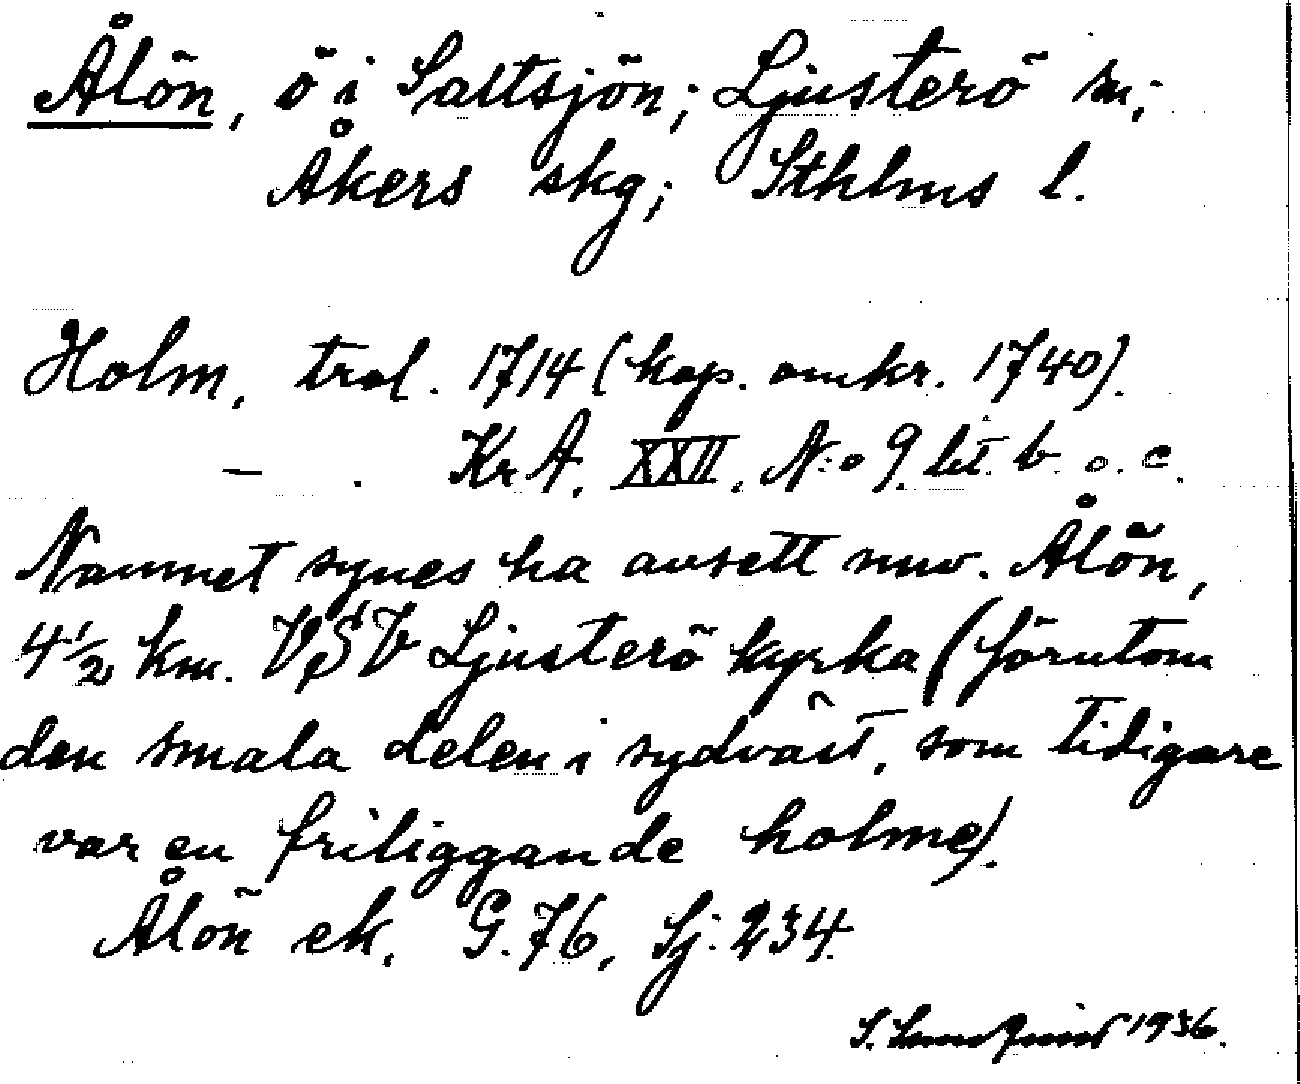 Ålön, ö i Saltsjön; Ljusterö sn;
Åkers skg; Sthlms l.
Holm, trol. 1714 (kop. omkr. 1740).
— . KrA. XXII. N:o 9. lit. b. o. c.
Namnet synes ha avsett nuv. Ålön,
4½ km. VSV Ljusterö kyrka (förutom
den smala delen i sydväst, som tidigare
var en friliggande holme).
Ålön ek. G. 76, Sj: 234.
S. 1936.